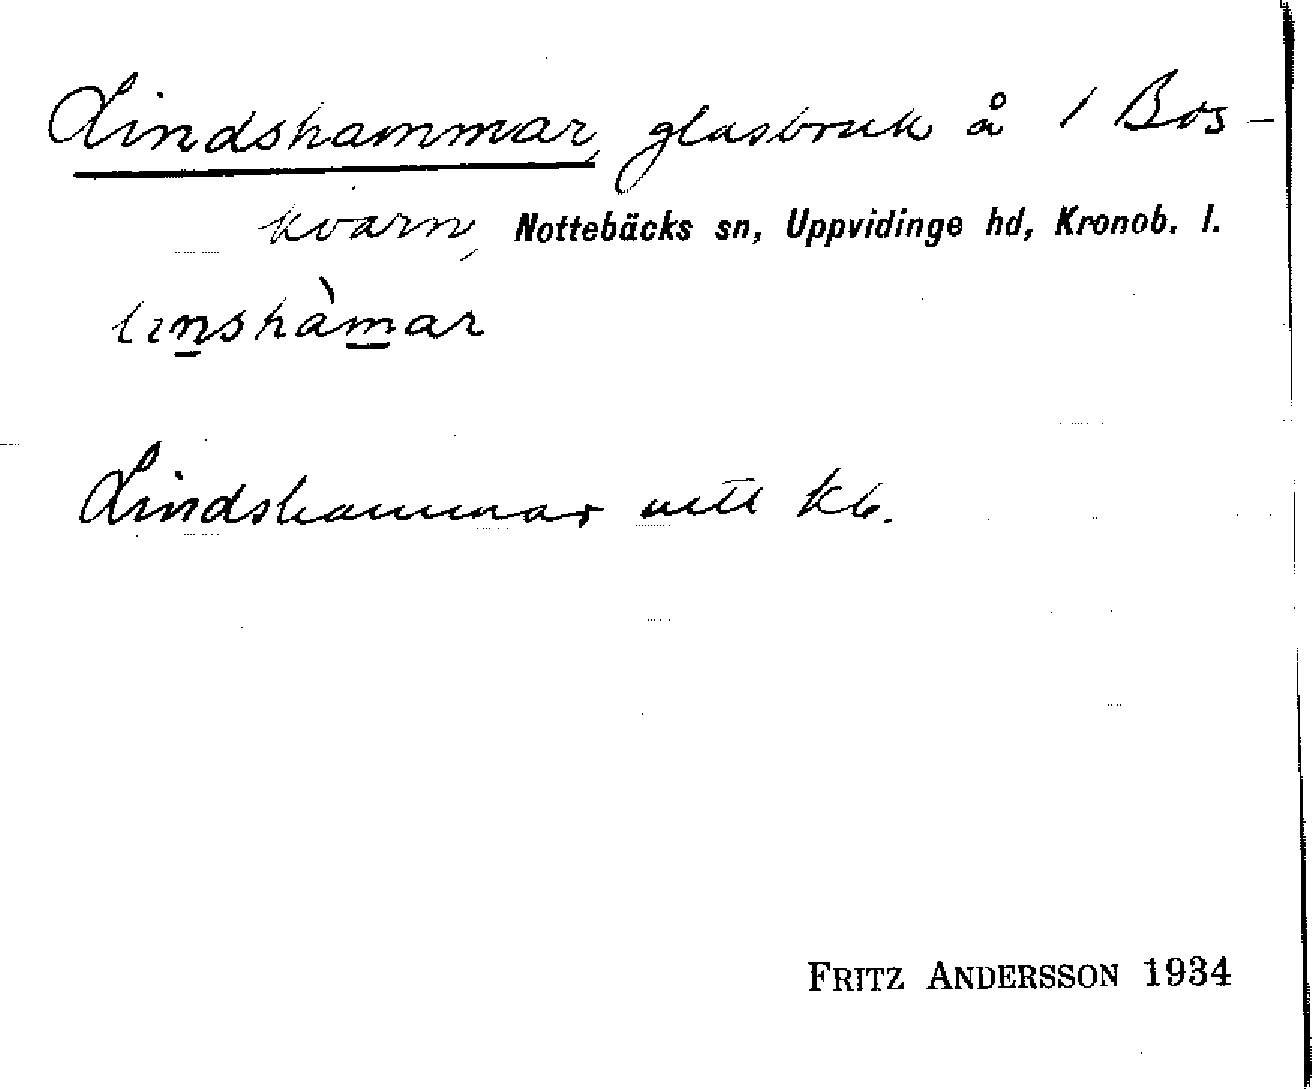 Lindshammar, glasbruk å 1 Bos-
kvarn, Nottebäcks sn, Uppvidinge hd, Kronob. l.
linshàmar
Lindshammar kb.
FRITZ ANDERSSON 1934